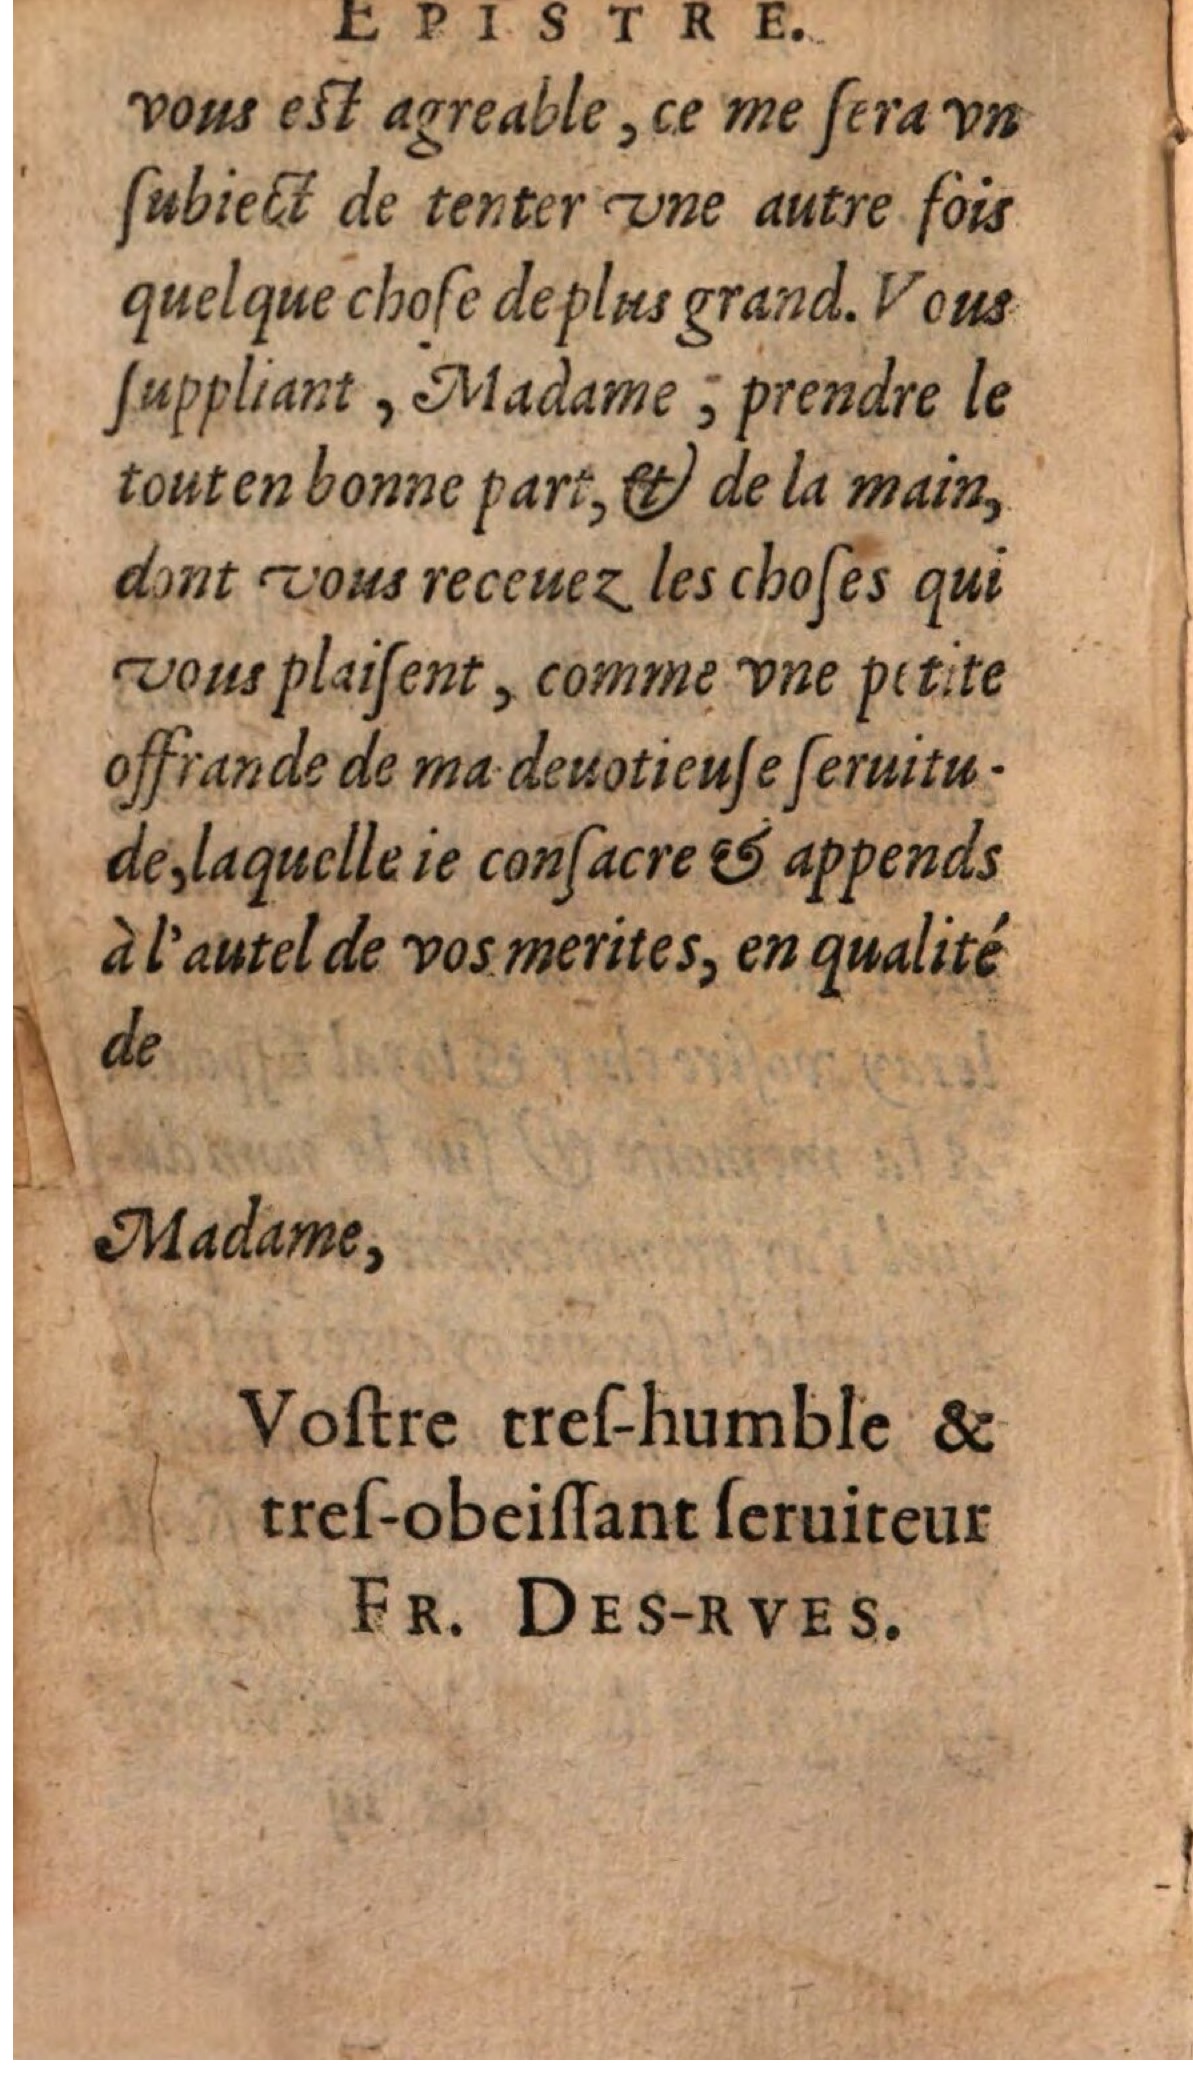 EPISTRE.
vous est agreable, ce me ſera vn
ſubiect de tenter vne autre fois
quelque choſe de plus grand. Vous
ſuppliant, Madame, prendre le
tout en bonne part, & de la main,
dont vous receuez les choſes qui
vous plaiſent, comme vne petite
offrande de ma deuotieuſe ſeruitu-
de, laquelle ie conſacre & appends
à l'autel de vos merites, en qualité
de
Madame,
Voſtre treſ-humble &
treſ-obeiſſant ſeruiteur
FR. DES-RVES.